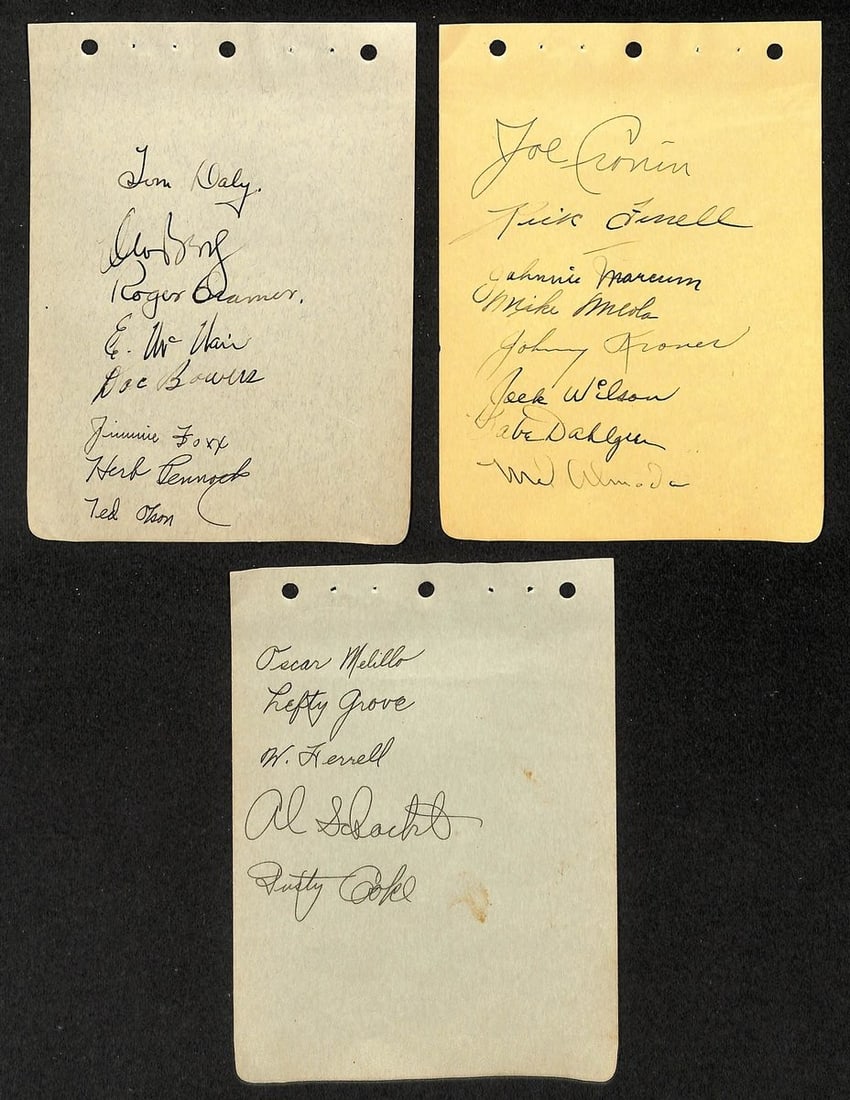 Tom Daly.
Moe Berg
Roger Cramer.
E. Mc Nair
Doc Bowers
Jimmie Foxx
Herb Pennock
Ted Olson
Joe Cronin
Rick Ferrell
Johnnie Marcum
Mike Meola
Johnny Kroner
Jack Wilson
Babe Dahlgren
Mel Almada
Oscar Melillo
Lefty Grove
W. Ferrell
Al Schacht
Dusty Cooke